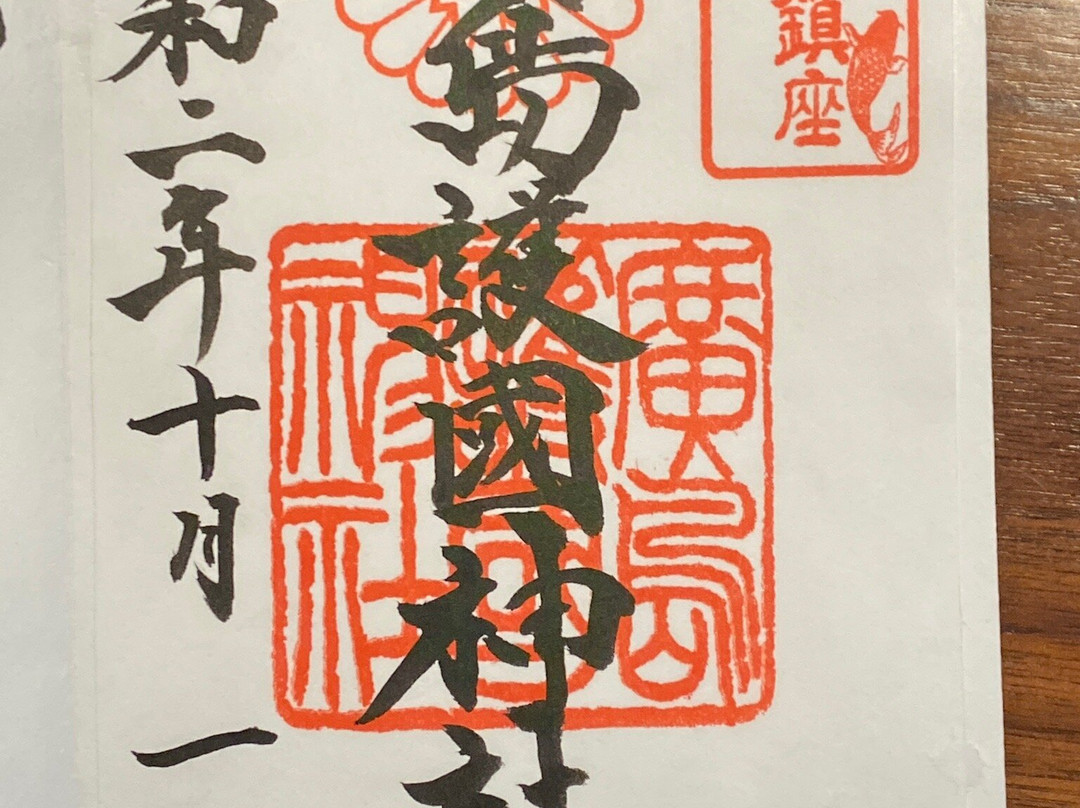 鎮座
島護國神社
廣島
護國
神社
和二年十月一